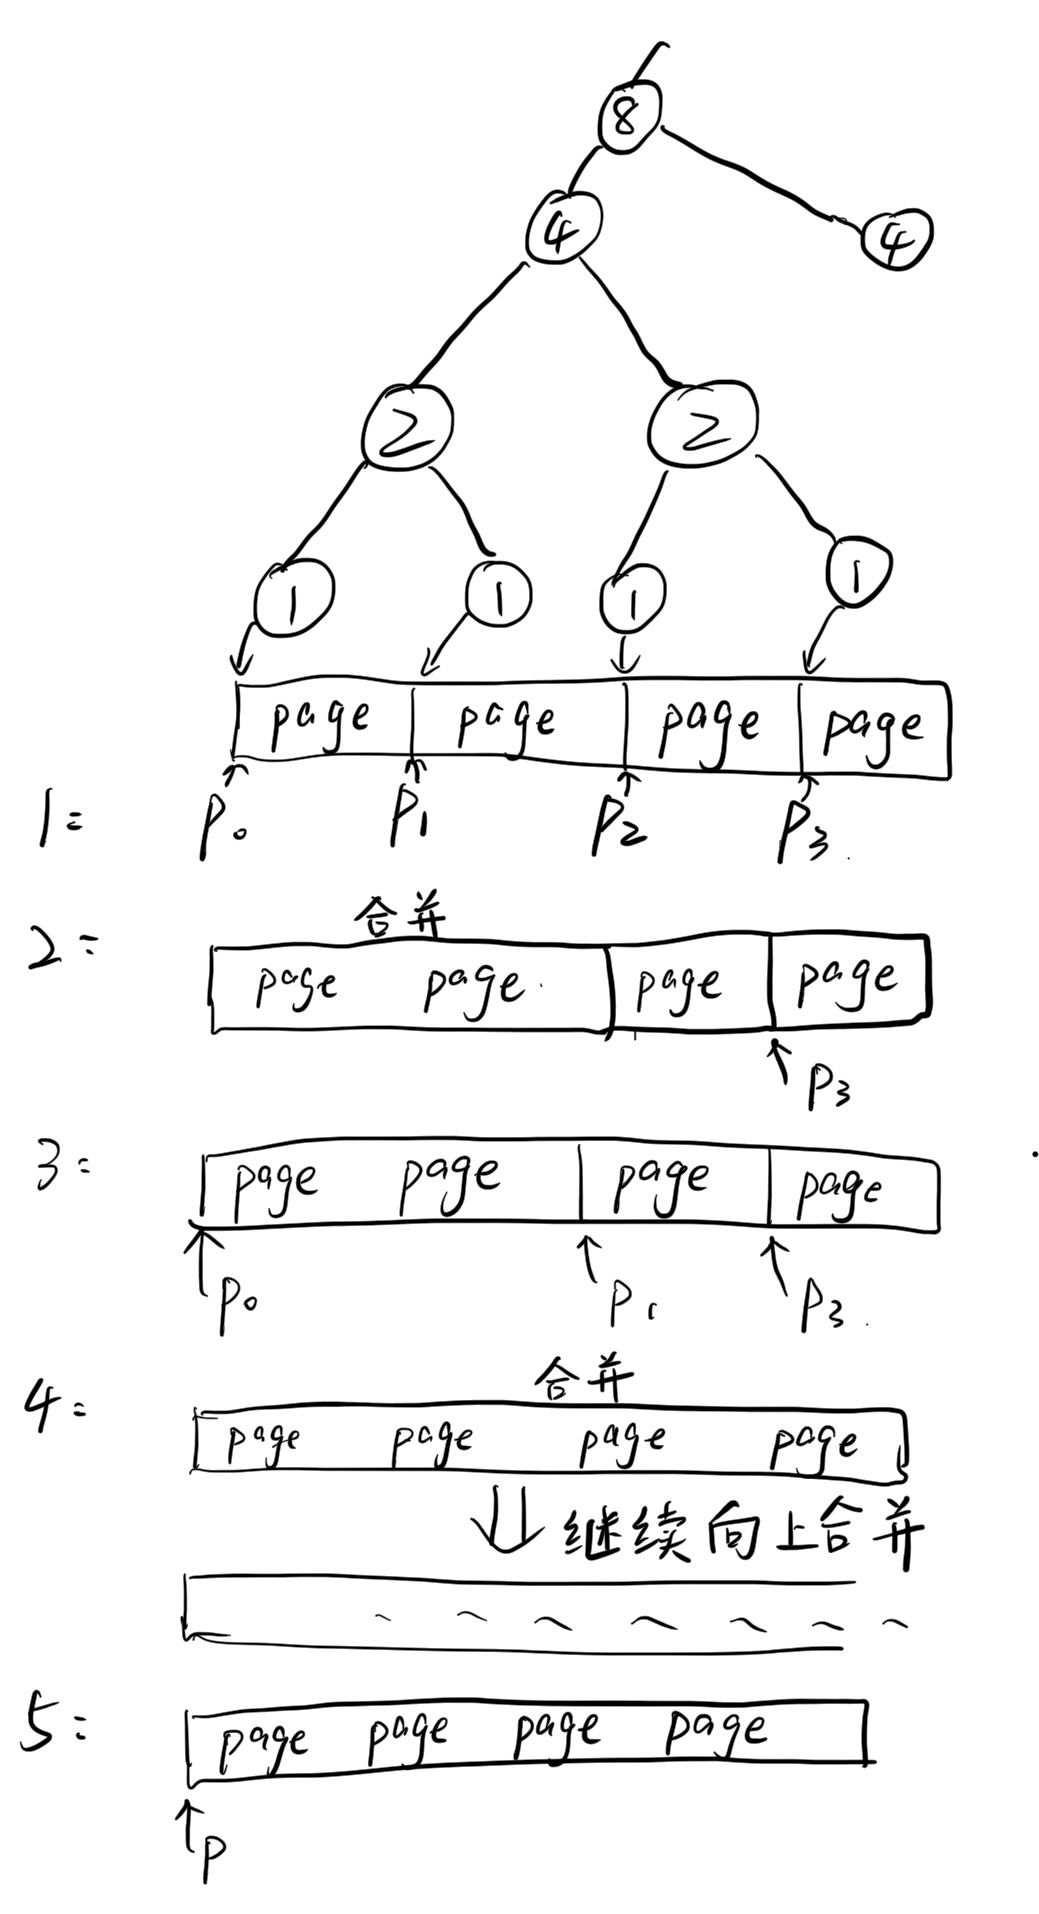 8
4 4
2 2
1 1 1 1
page page page page
1: P0 P1 P2 P3
2: 合并
page page page page
P3
3: page page page page
P0 P1 P3
4: 合并
page page page page
继续向上合并
5: page page page page
P